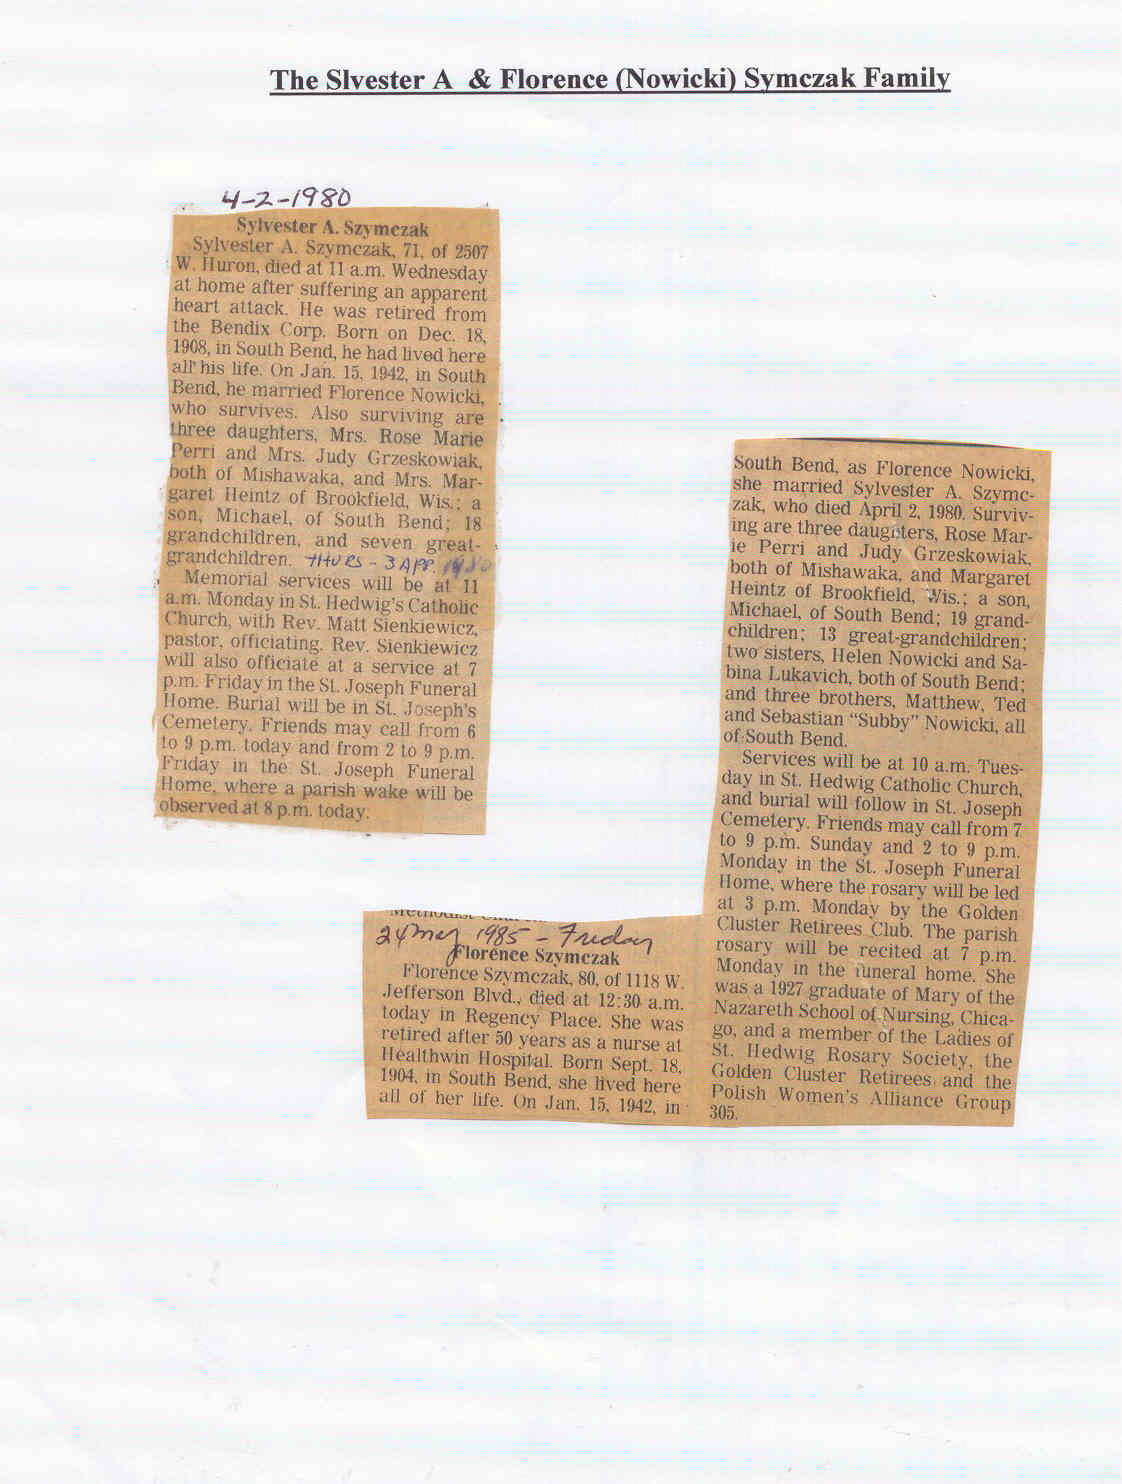 The Slvester A & Florence (Nowicki) Symczak Family
4-2-1980
Sylvester A. Szymczak
Sylvester A. Szymczak, 71, of 2507
W. Huron, died at 11 a.m. Wednesday
at home after suffering an apparent
heart attack. He was retired from
the Bendix Corp. Born on Dec. 18,
1908, in South Bend, he had lived here
all his life. On Jan. 15, 1942, in South
Bend, he married Florence Nowicki,
who survives. Also surviving are
three daughters, Mrs. Rose Marie
Perri and Mrs. Judy Grzeskowiak,
both of Mishawaka, and Mrs. Mar-
garet Heintz of Brookfield, Wis.; a
son, Michael, of South Bend; 18
grandchildren, and seven great-
grandchildren. THURS - 3 APR. 1980
Memorial services will be at 11
a.m. Monday in St. Hedwig's Catholic
Church, with Rev. Matt Sienkiewicz,
pastor, officiating. Rev. Sienkiewicz
will also officiate at a service at 7
p.m. Friday in the St. Joseph Funeral
Home. Burial will be in St. Joseph's
Cemetery. Friends may call from 6
to 9 p.m. today and from 2 to 9 p.m.
Friday in the St. Joseph Funeral
Home, where a parish wake will be
observed at 8 p.m. today.
Methodist
24 May 1985 - Friday
Florence Szymczak
Florence Szymczak, 80, of 1118 W.
Jefferson Blvd., died at 12:30 a.m.
today in Regency Place. She was
retired after 50 years as a nurse at
Healthwin Hospital. Born Sept. 18,
1904, in South Bend, she lived here
all of her life. On Jan. 15, 1942, in
South Bend, as Florence Nowicki,
she married Sylvester A. Szymc-
zak, who died April 2, 1980. Surviv-
ing are three daughters, Rose Mar-
ie Perri and Judy Grzeskowiak,
both of Mishawaka, and Margaret
Heintz of Brookfield, Wis.; a son,
Michael, of South Bend; 19 grand-
children; 13 great-grandchildren;
two sisters, Helen Nowicki and Sa-
bina Lukavich, both of South Bend;
and three brothers, Matthew, Ted
and Sebastian "Subby" Nowicki, all
of South Bend.
Services will be at 10 a.m. Tues-
day in St. Hedwig Catholic Church,
and burial will follow in St. Joseph
Cemetery. Friends may call from 7
to 9 p.m. Sunday and 2 to 9 p.m.
Monday in the St. Joseph Funeral
Home, where the rosary will be led
at 3 p.m. Monday by the Golden
Cluster Retirees Club. The parish
rosary will be recited at 7 p.m.
Monday in the funeral home. She
was a 1927 graduate of Mary of the
Nazareth School of Nursing, Chica-
go, and a member of the Ladies of
St. Hedwig Rosary Society, the
Golden Cluster Retirees and the
Polish Women's Alliance Group
305.